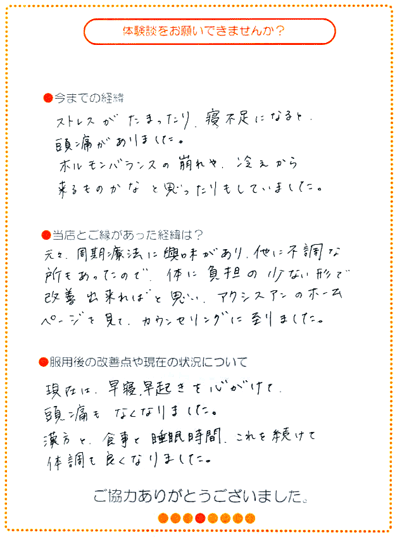 体験談をお願いできませんか？
●今までの経緯
ストレスが たまったり、寝不足になると、
頭痛がありました。
ホルモンバランスの崩れや、冷えから
来るものかな と思ったりもしていました。
●当店とご縁があった経緯は？
元々、周期療法に興味があり、他に不調な
所もあったので、体に負担の少ない形で
改善出来ればと思い、アクシスアンのホーム
ページを見て、カウンセリングに至りました。
●服用後の改善点や現在の状況について
現在は、早寝早起きを心がけて、
頭痛も なくなりました。
漢方と、食事と睡眠時間、これを続けて
体調も良くなりました。
ご協力ありがとうございました。